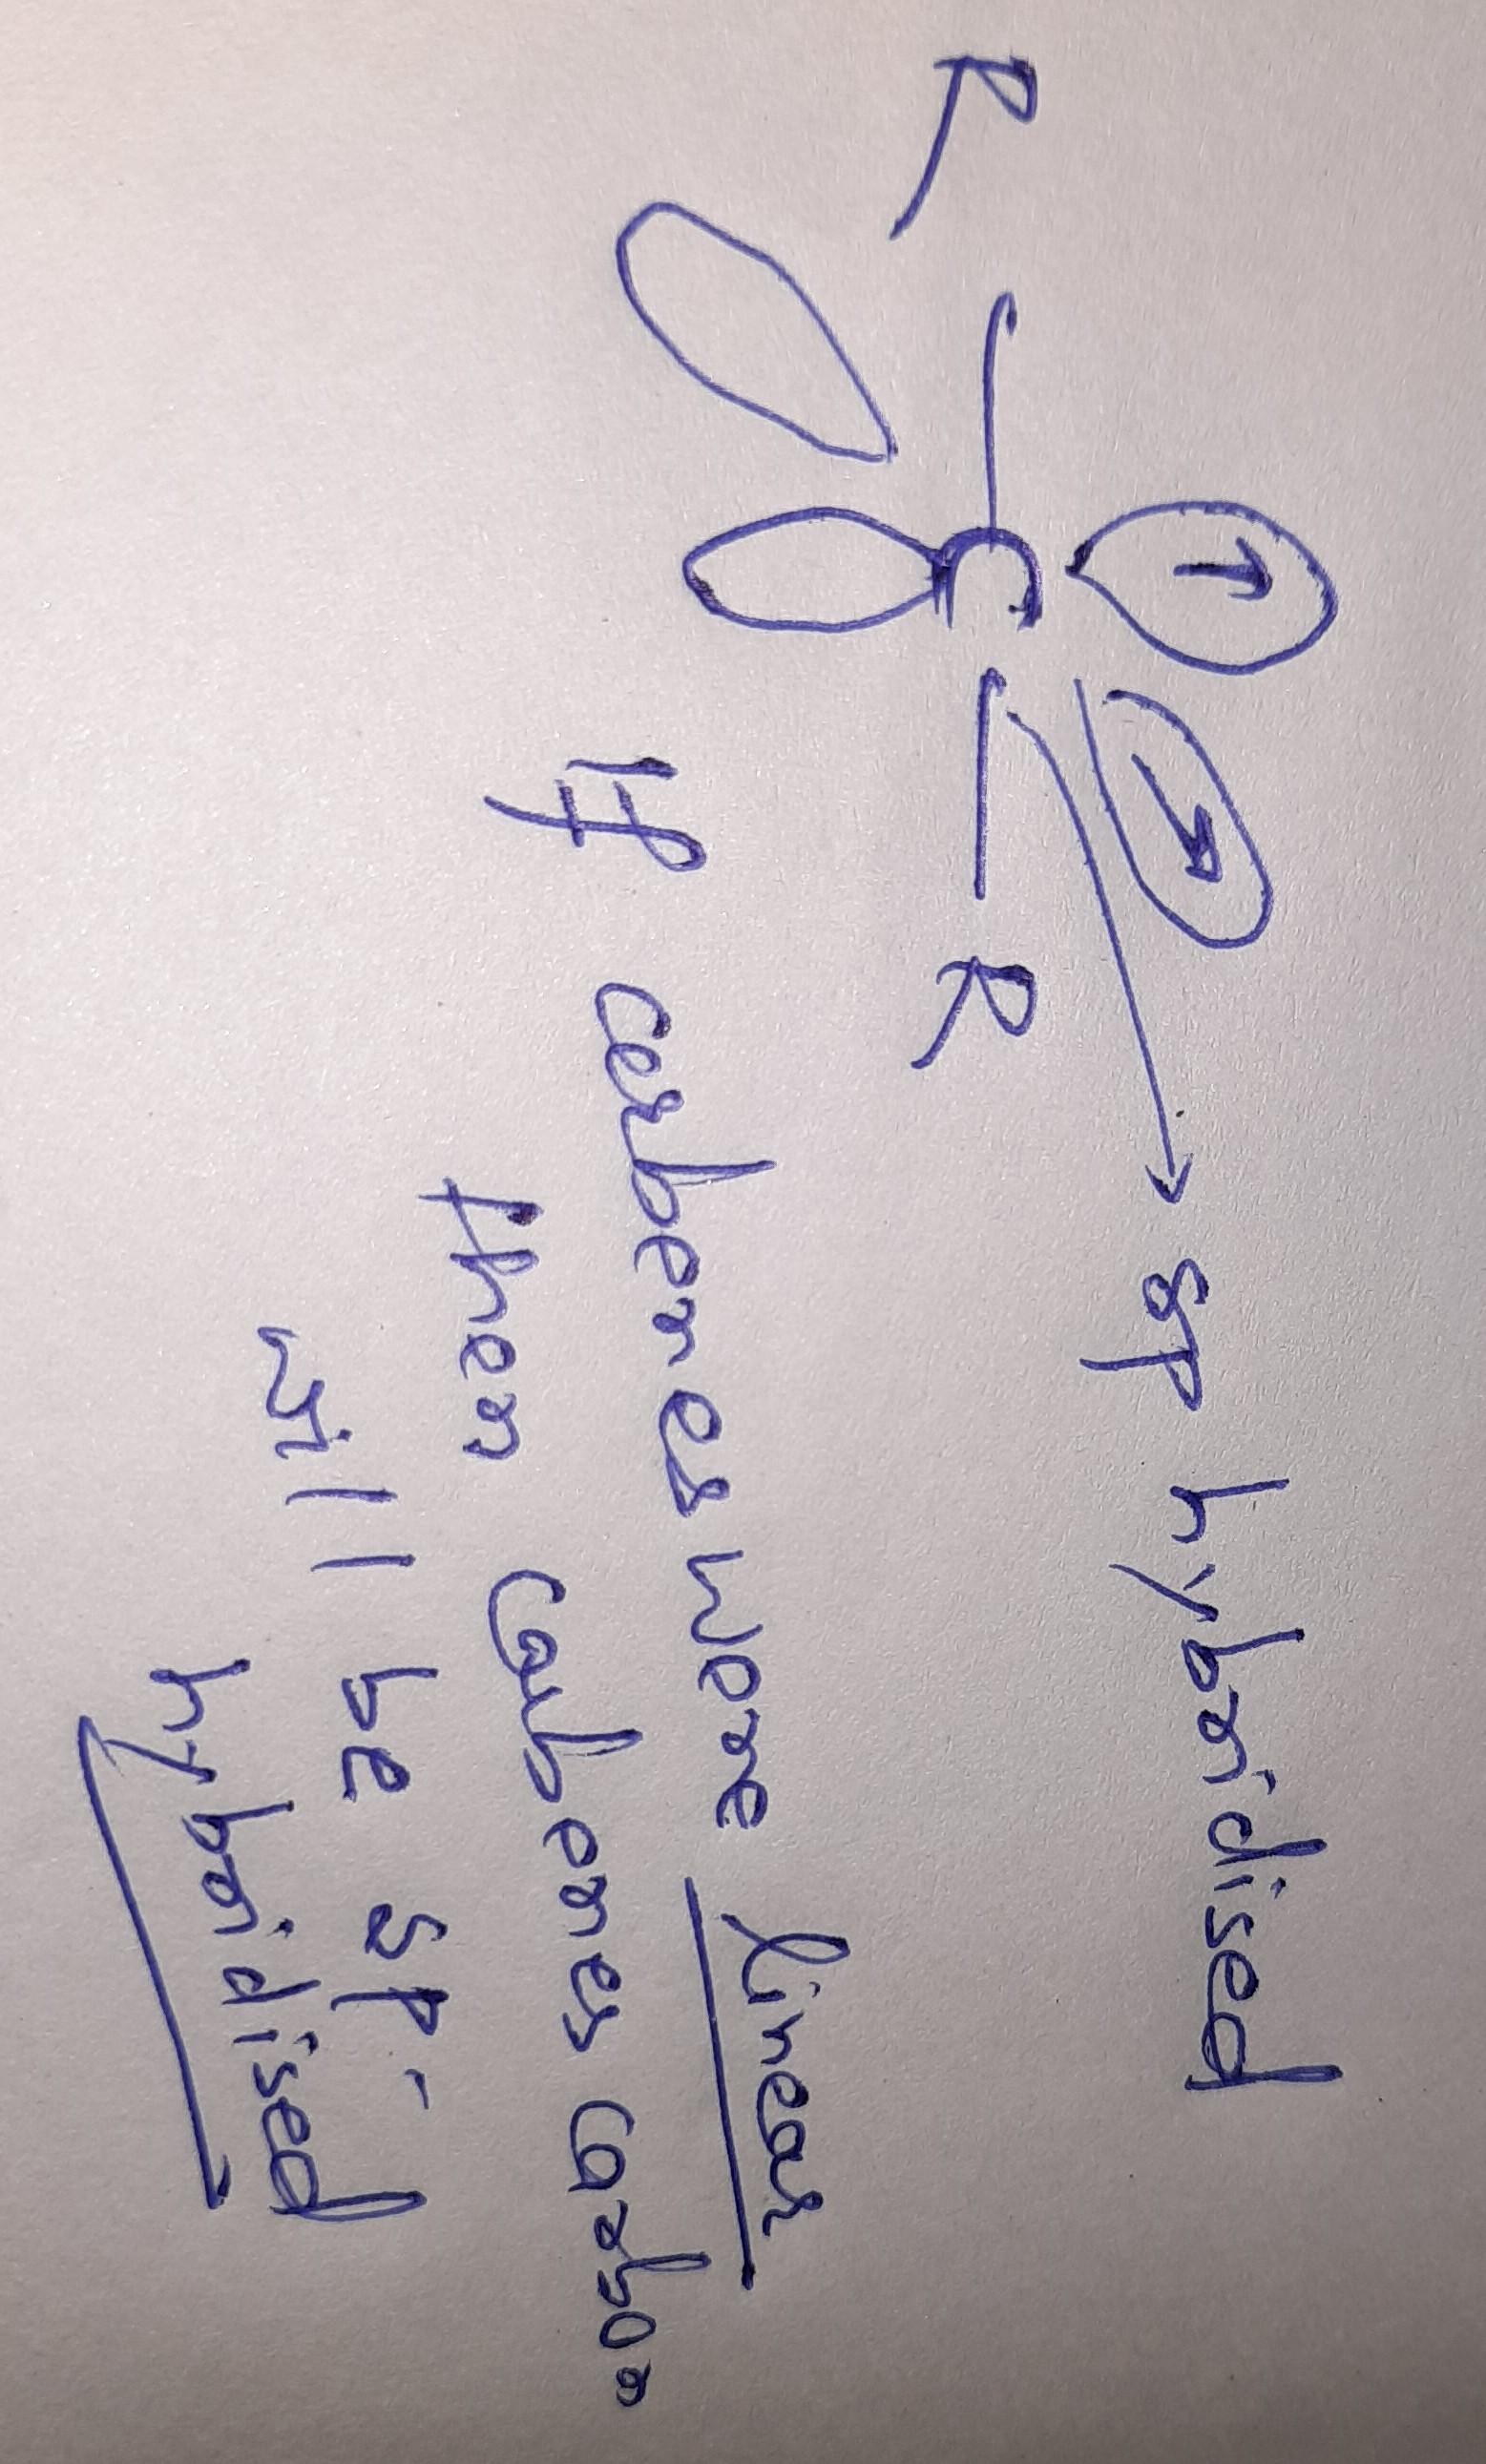 R — C — R
sp hybridised
If carbenes were linear
then carbenes carbon
will be sp-
hybridised